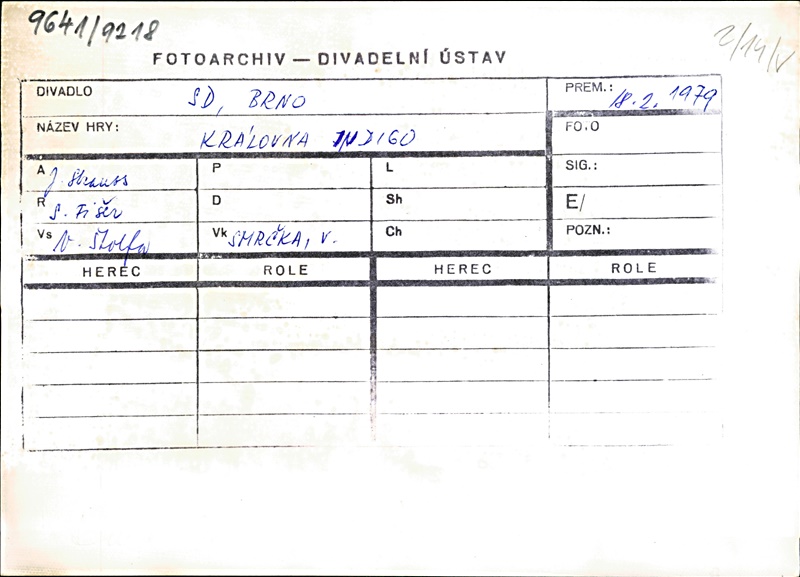 9641/9218
2/14/V
FOTOARCHIV — DIVADELNÍ ÚSTAV
DIVADLO SD, BRNO PREM.: 18.2.1979
NÁZEV HRY: KRÁLOVNA INDIGO FO.O
A J. Strauss P L SIG.:
R S. Fišer D Sh E/
Vs V. Štolfa Vk SMRČKA, V. Ch POZN.:
HEREC ROLE HEREC ROLE